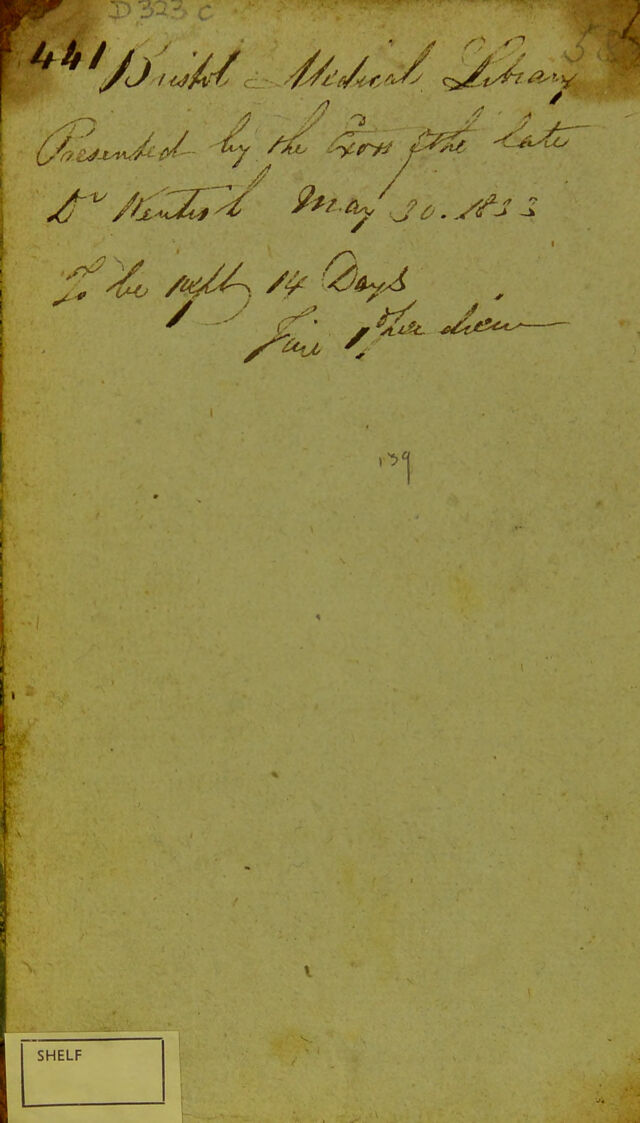 D323c
58
441 Bristol Medical Library
Presented by the Exors of the late
Dr Kentish May 30. 1833
To be kept 14 Days
Fine 1 Per diem
139
SHELF